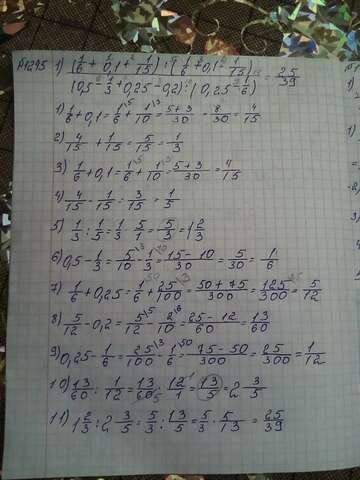 №1295 1) (1/6 + 0,1 + 1/15) : (1/6 + 0,1 - 1/15) = 25/39
(0,5 - 1/3 + 0,25 - 0,2) : (0,25 - 1/6)
1) 1/6 + 0,1 = 1/6 + 1/10 = 5+3/30 = 8/30 = 4/15
2) 4/15 + 1/15 = 5/15 = 1/3
3) 1/6 + 0,1 = 1/6 + 1/10 = 5+3/30 = 4/15
4) 4/15 - 1/15 = 3/15 = 1/5
5) 1/3 : 1/5 = 1/3 · 5/1 = 5/3 = 1 2/3
6) 0,5 - 1/3 = 5/10 - 1/3 = 15-10/30 = 5/30 = 1/6
7) 1/6 + 0,25 = 1/6 + 25/100 = 50+75/300 = 125/300 = 5/12
8) 5/12 - 0,2 = 5/12 - 2/10 = 25-12/60 = 13/60
9) 0,25 - 1/6 = 25/100 - 1/6 = 75-50/300 = 25/300 = 1/12
10) 13/60 : 1/12 = 13/60 · 12/1 = 13/5 = 2 3/5
11) 1 2/3 : 2 3/5 = 5/3 : 13/5 = 5/3 · 5/13 = 25/39